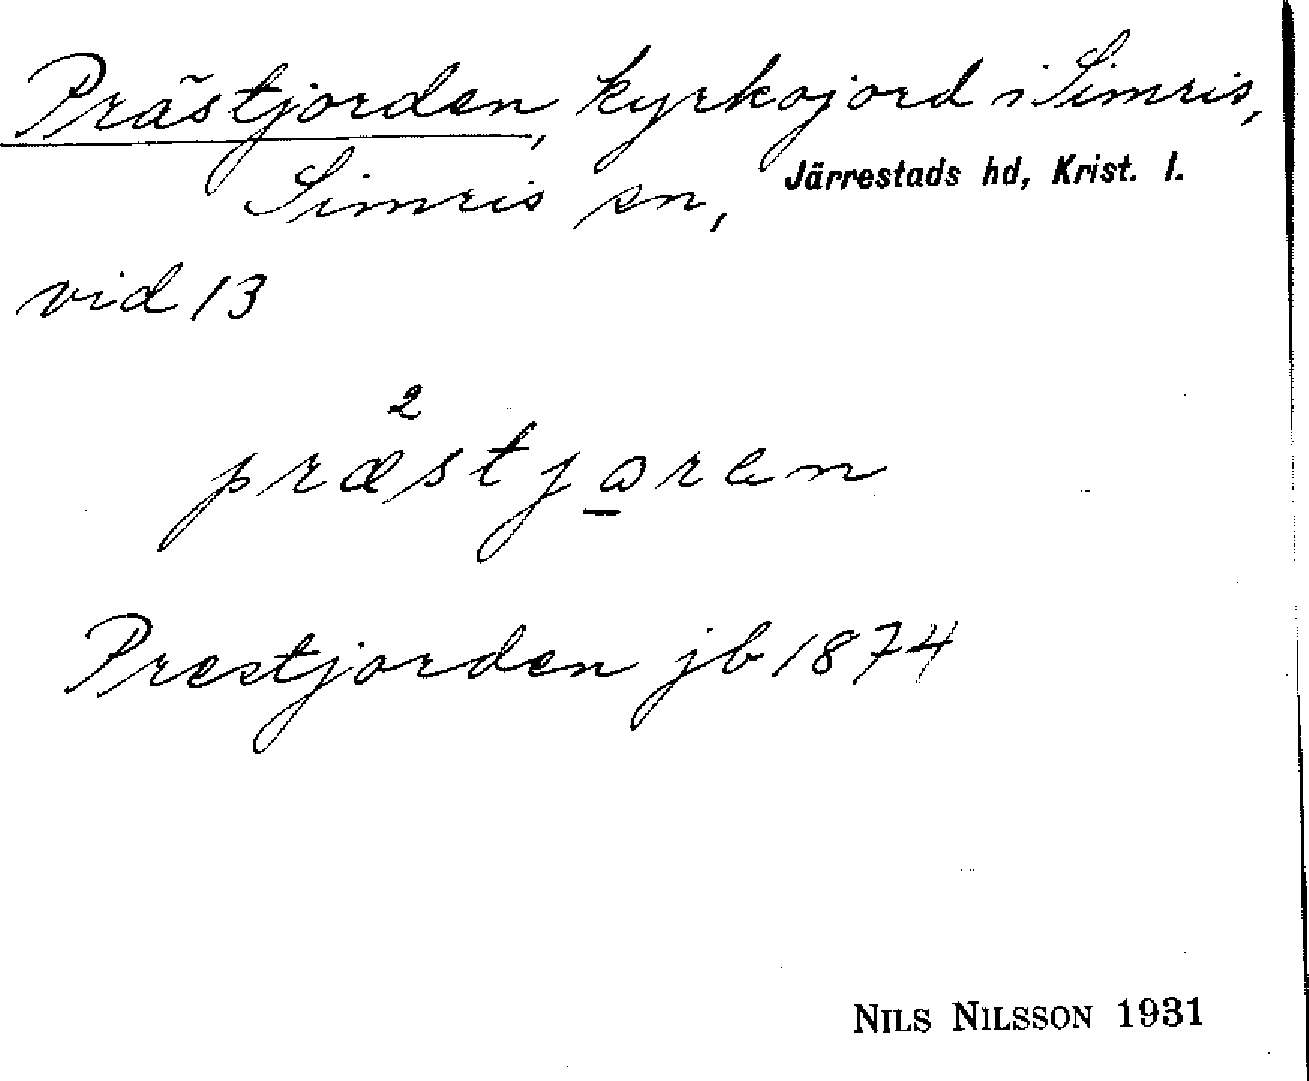 Prästjorden, kyrkojord i Simris,
Simris sn, Järrestads hd, Krist. l.
vid 13
2
præstjaren
Prestjorden jb 1874
NILS NILSSON 1931